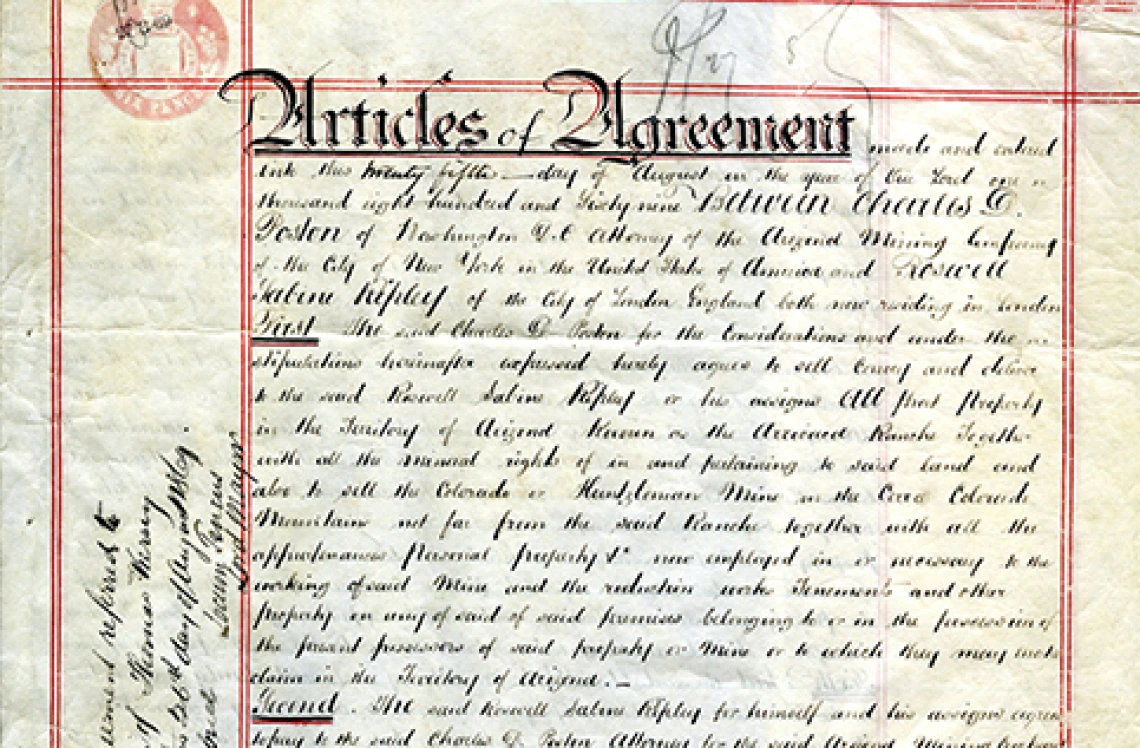 SIX PENCE
Articles of Agreement made and entered
into this twenty fifth day of August in the year of Our Lord one
thousand eight hundred and Sixty nine Between Charles D.
Poston of Washington D.C Attorney of the Arizona Mining Company
of the City of New York in the United States of America and Roswell
Sabine Ripley of the City of London England both now residing in London
First The said Charles D. Poston for the Considerations and under the
stipulations hereinafter expressed hereby agrees to sell Convey and deliver
to the said Roswell Sabine Ripley or his assigns All that Property
in the Territory of Arizona Known as the Ranche Together
with all the mineral rights of in and pertaining to said land and
also to sell the Colorado or Heintzleman Mine in the Cerro Colorado
Mountains not far from the said Ranche together with all the
appurtenances Personal property &c now employed in or necessary to the
working of said Mine and the reduction works Tenements and other
Property on any of said of said premises belonging to or in the possession of
the present possessors of said property or Mine or to which they may
claim in the Territory of Arizona.—
Second. The said Roswell Sabine Ripley for himself and his assigns agrees
to pay to the said Charles D. Poston Attorney for the said Arizona Mining
referred to
of Thomas
26th day of August 1869
Lord Mayor